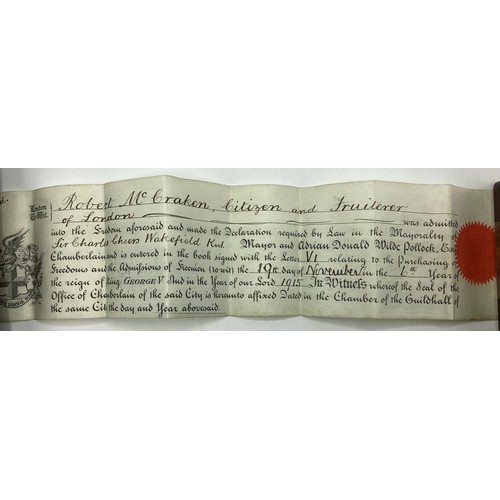 London
To Wit.
Robert McCraken, Citizen and Fruiterer
of London was admitted
into the Freedom aforesaid and made the Declaration required by Law in the Mayoralty of
Sir Charles Cheers Wakefield Knt. Mayor and Adrian Donald Wilde Pollock, Esq
Chamberlain and is entered in the book signed with the Letter V1 relating to the Purchasing of
Freedoms and the Admissions of Freemen (to wit) the 19th day of November in the 6th Year of
the reign of King GEORGE V And in the Year of our Lord 1915 In Witness whereof the Seal of the
Office of Chamberlain of the said City is hereunto affixed Dated in the Chamber of the Guildhall of
the same City the day and Year abovesaid.